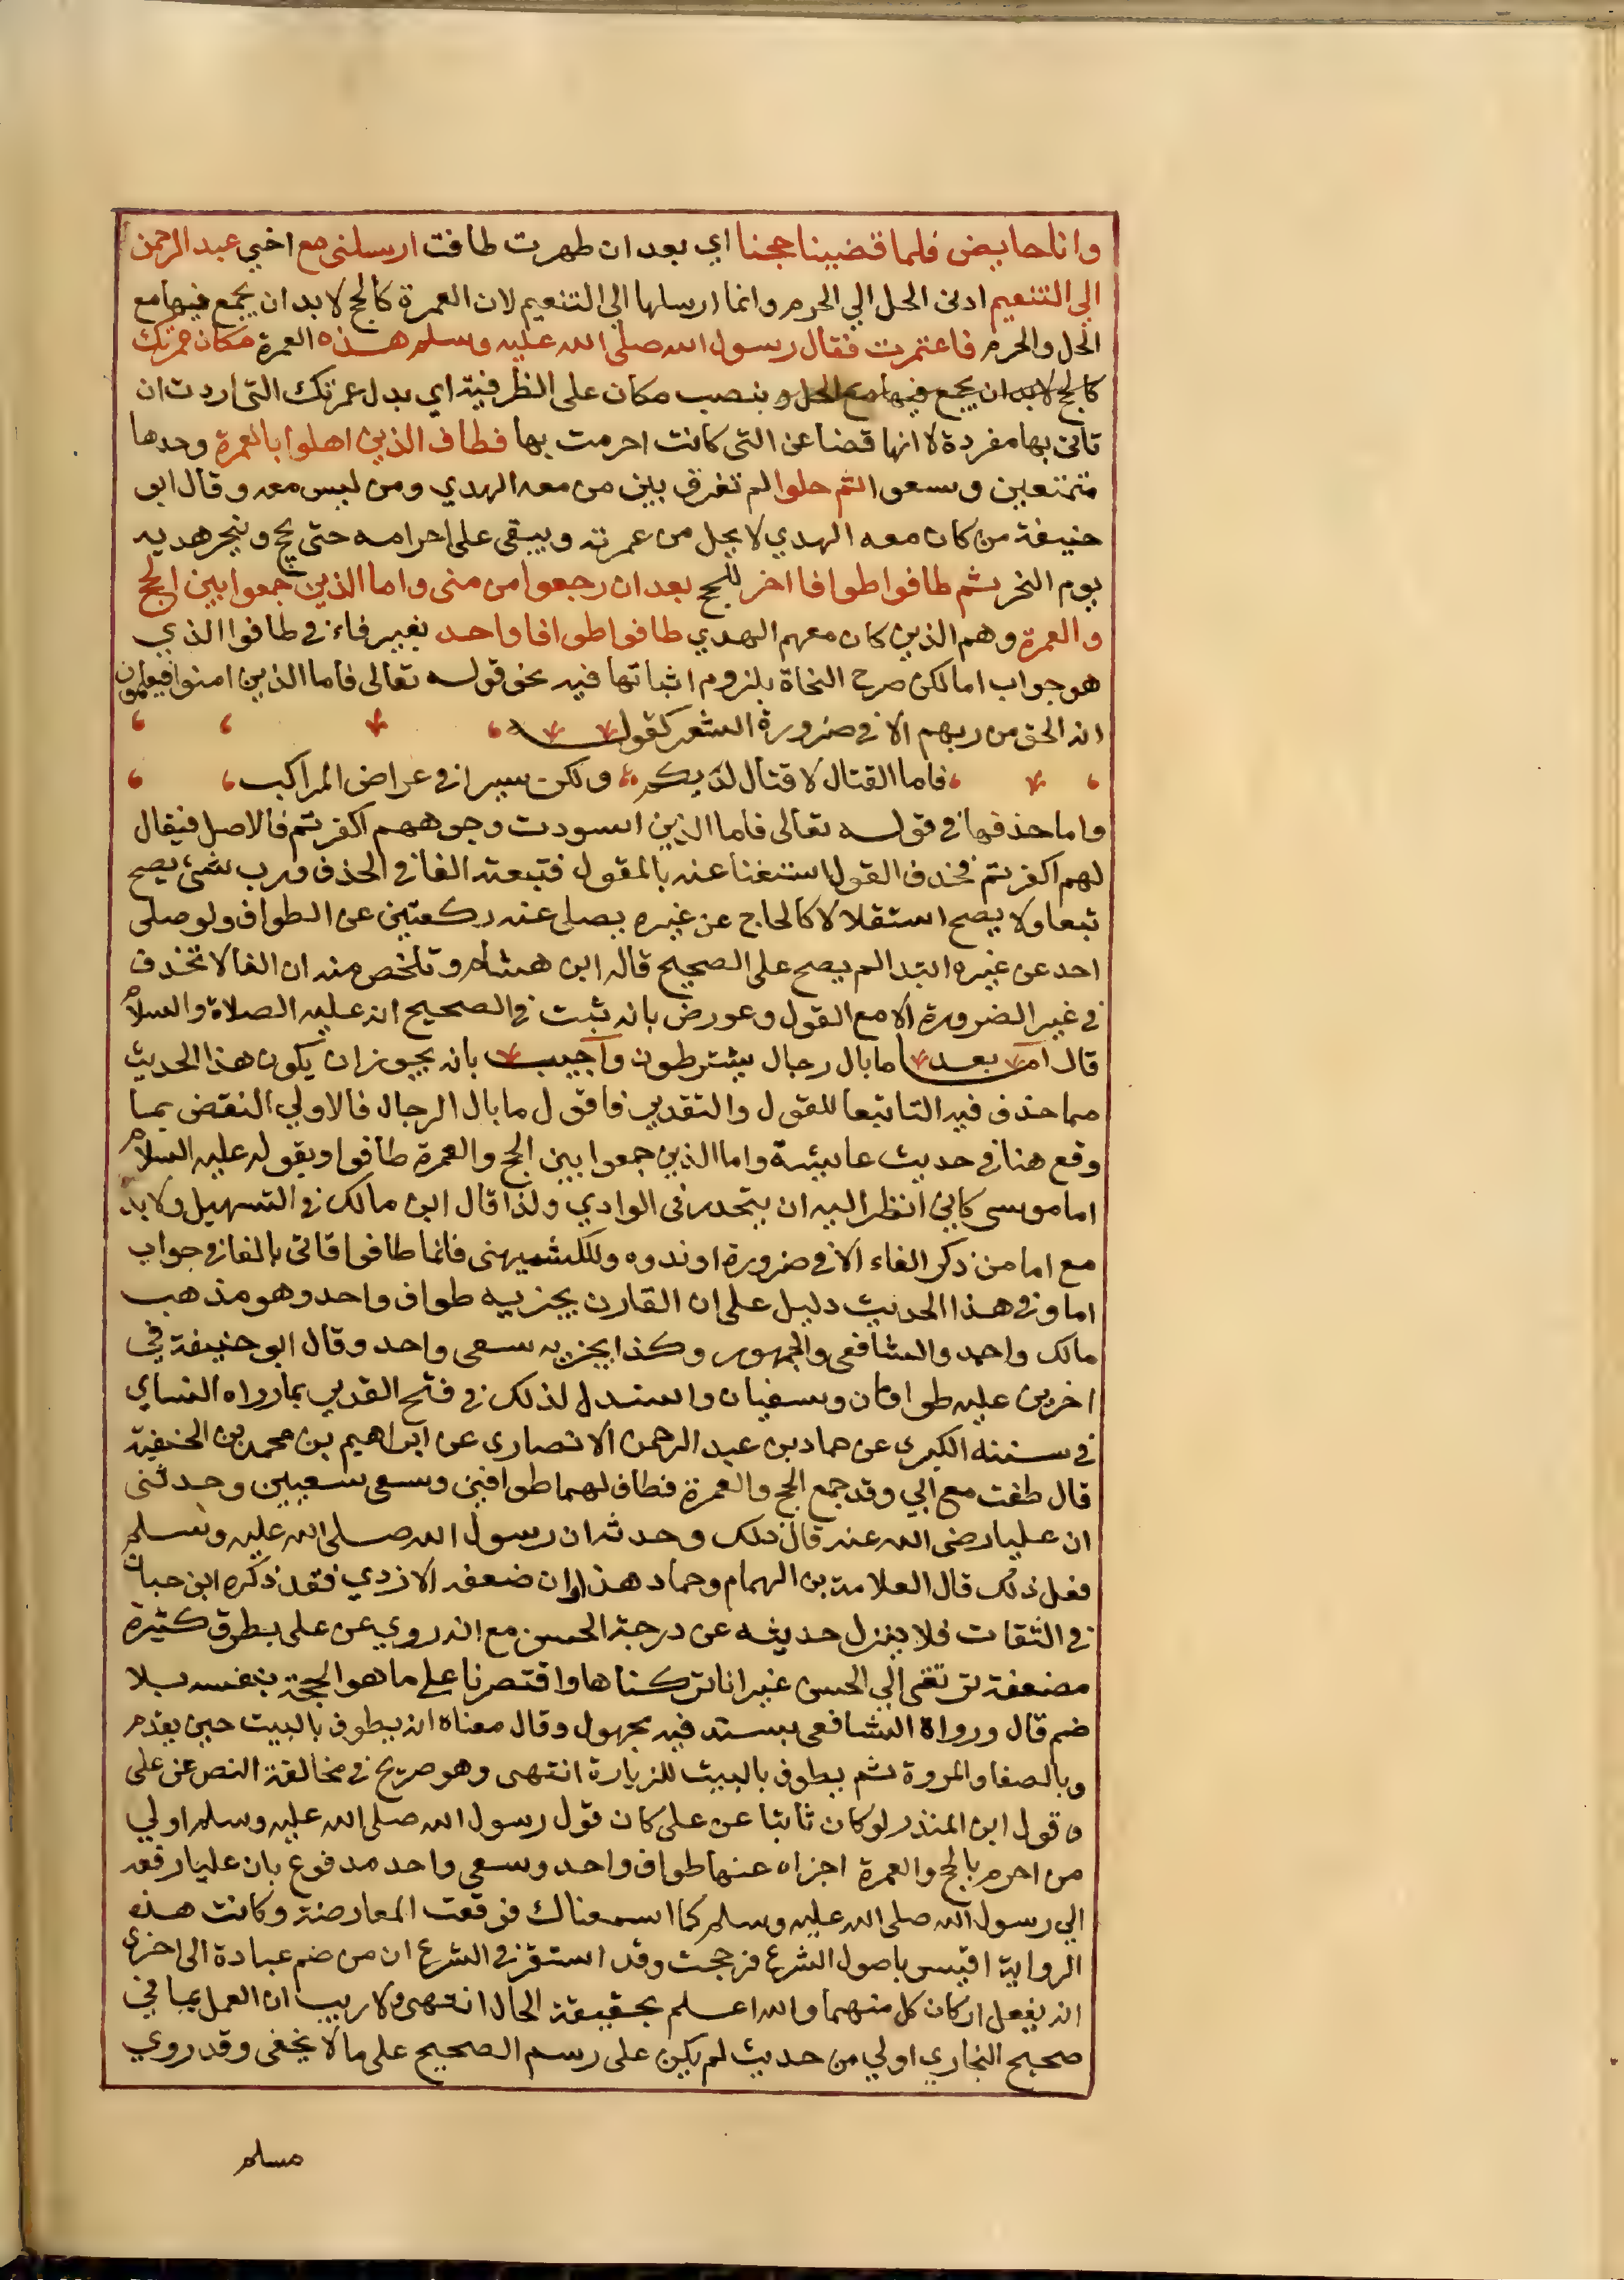 وانا حايض فلما قضينا حجنا اي بعد ان طهرت طافت ارسلني مع اخي عبد الرحمن
الي التنعيم ادني الحل الي الحرم وانما ارسلها الي التنعيم لان العمرة كالحج لا بد ان يجمع فيها مع
الحل والحرم فاعتمرت فقال رسول الله صلى الله عليه وسلم هذه العمرة مكان عمرتك
كالحج لا بد ان يجمع فيها مع الحل و بنصب مكان على الظرفية اي بدل عمرتك التي اردت ان
تاتي بها مفردة لا انها قضا عن التي كانت احرمت بها فطاف الذين اهلوا بالعمرة وحدها
متمتعين وسعوا ثم حلوا لم تفرق بين من معه الهدي ومن ليس معه وقال ابو
حنيفة من كان معه الهدي لا يحل من عمرته ويبقى على احرامه حتى يحج وينحر هديه
يوم النحر ثم طافوا طوافا اخر للحج بعد ان رجعوا من منى واما الذين جمعوا بين الحج
والعمرة وهم الذين كان معهم الهدي طافوا طوافا واحد بغير فاء في طافوا الذي
هو جواب اما لكن صرح النحاة بلزوم اثباتها فيه نحو قوله تعالى فاما الذين امنوا فيعلمون
انه الحق من ربهم الا في ضرورة الشعر كقوله
فاما القتال لا قتال لديكم ولكن سيرا في عراض المراكب
واما حذفها في قوله تعالى فاما الذين اسودت وجوههم اكفرتم فالاصل فيقال
لهم اكفرتم فحذف القول استغنا عنه بالمقول فتبعته الفا في الحذف ورب شئ يصح
تبعا ولا يصح استقلالا كالحاج عن غيره يصلى عنه ركعتين عن الطواف ولو صلى
احد عن غيره ابتدا لم يصح على الصحيح قاله ابن هشام وتلخص منه ان الفا لا تحذف
في غير الضرورة الا مع القول وعورض بانه ثبت في الصحيح انه عليه الصلاة والسلام
قال اما بعد ما بال رجال يشترطون واجيب بانه يجوز ان يكون هذا الحديث
مما حذف فيه الفا تبعا للقول والتقدير فاقول ما بال الرجال فالاولي النقض بما
وقع هنا في حديث عايشة واما الذين جمعوا بين الحج والعمرة طافوا وبقوله عليه السلام
اما موسى كاني انظر اليه ان يتحدر في الوادي ولذا قال ابن مالك في التسهيل ولا بد
مع اما من ذكر الفاء الا في ضرورة او ندوه وللكشميهنى فانما طافوا فاتى بالفا في جواب
اما وفي هذا الحديث دليل على ان القارن يجزيه طواف واحد وهو مذهب
مالك واحمد والشافعي والجمهور وكذا يجزيه سعى واحد وقال ابو حنيفة في
اخرين عليه طوافان وسعيان واستدل لذلك في فتح القدير بما رواه النساي
في سننه الكبرى عن حماد بن عبد الرحمن الانصاري عن ابراهيم بن محمد بن الحنفية
قال طفت مع ابي وقد جمع الحج والعمرة فطاف لهما طوافين وسعى سعيين وحدثنى
ان عليا رضى الله عنه قال ذلك وحدثه ان رسول الله صلى الله عليه وسلم
فعل ذلك قال العلامة بن الهمام وحماد هذا وان ضعفه الازدي فقد ذكره ابن حبان
في الثقات فلا ينزل حديثه عن درجة الحسن مع انه روي عن على بطرق كثيرة
مضعفة ترتقى الي الحسن غير انا تركناها واقتصرنا على ما هو الحجة بنفسه بلا
ضم قال ورواه الشافعي بسند فيه مجهول وقال معناه انه يطوف بالبيت حين يقدم
وبالصفا والمروة ثم يطوف بالبيت للزيارة انتهى وهو صريح في مخالفة النص عن على
وقول ابن المنذر لو كان ثابتا عن على كان قول رسول الله صلى الله عليه وسلم اولي
من احرم بالحج والعمرة اجزاه عنها طواف واحد وسعى واحد مدفوع بان عليا رفعه
الي رسول الله صلى الله عليه وسلم كما اسمعناك فوقعت المعارضة وكانت هذه
الرواية اقيس باصول الشرع فرجحت وقد استقر في الشرع ان من ضم عبادة الى اخرى
انه يفعل اركان كل منهما والله اعلم بحقيقة الحال انتهى ولا ريب ان العمل بما في
صحيح البخاري اولي من حديث لم يكن على رسم الصحيح على ما لا يخفى وقد روي
مسلم